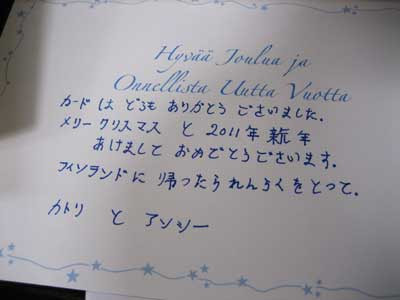 Hyvää Joulua ja
Onnellista Uutta Vuotta
カードは どうも ありがとう ございました.
メリー クリスマス と 2011年 新年
あけまして おめでとうございます.
フィンランドに 帰ったら れんらくをとって.
カトリ と アンシー